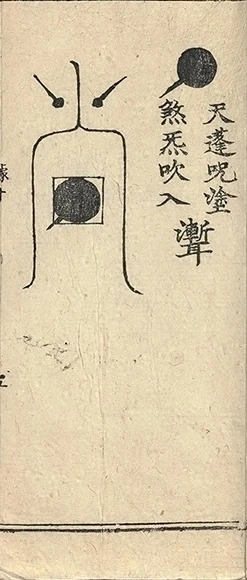 天蓬呪塗
煞炁吹入
魙